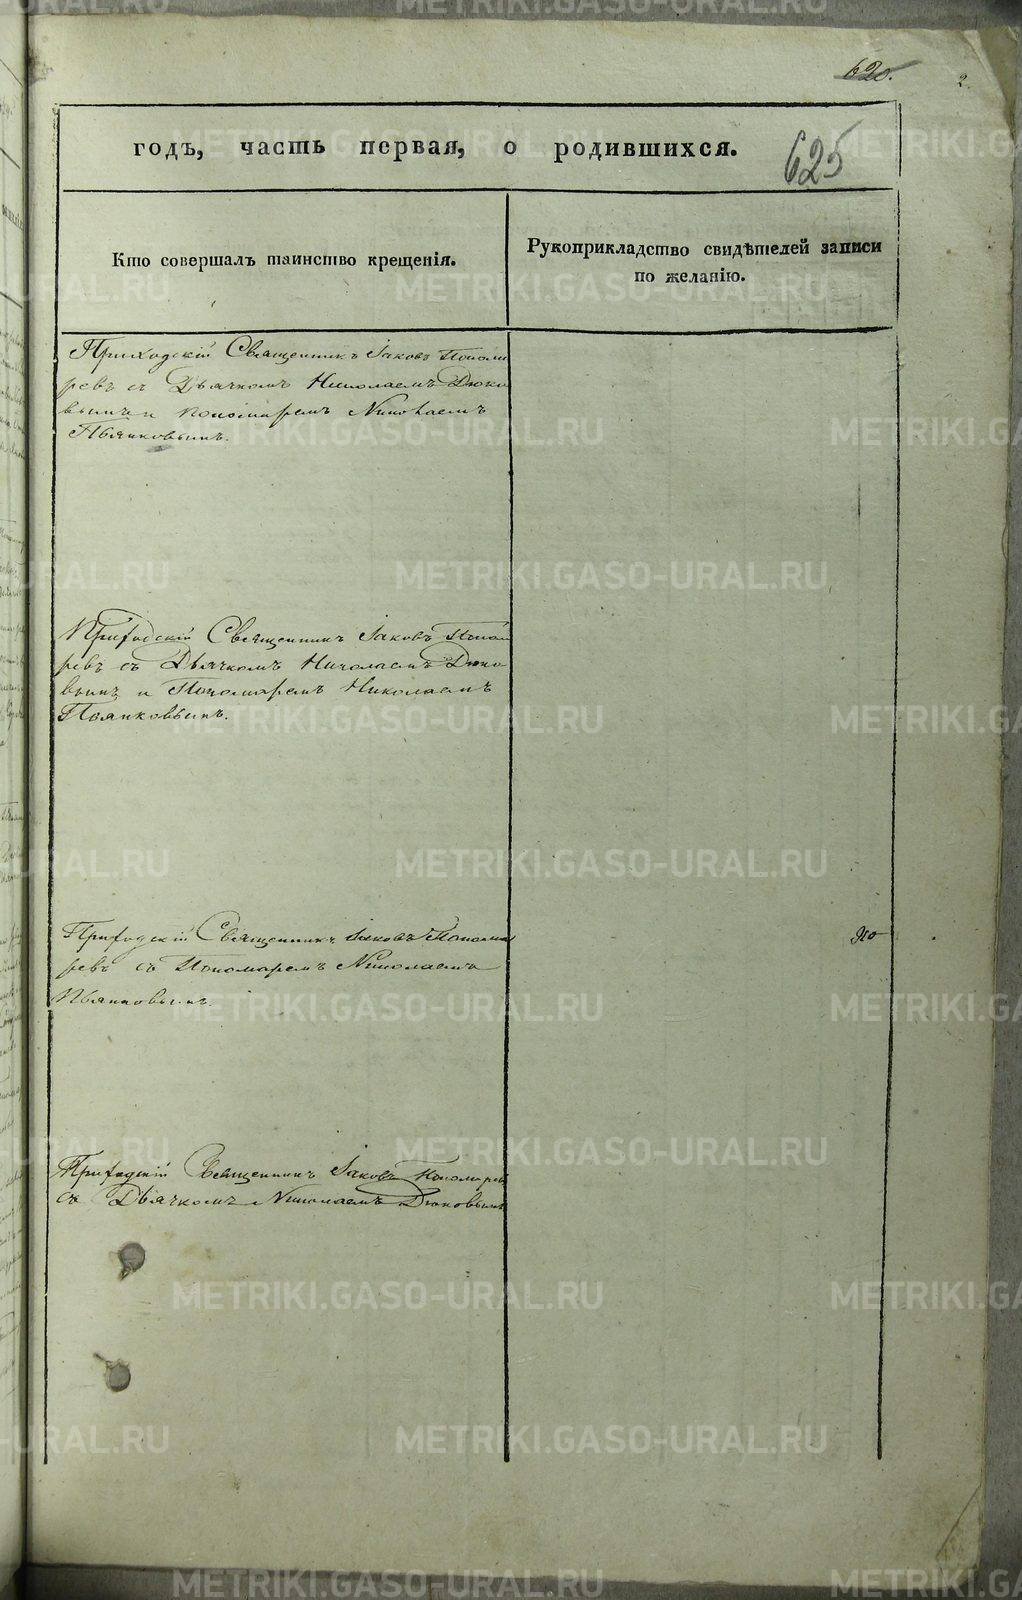 620. 2
625
годъ, часть первая, о родившихся.
Кто совершалъ таинство крещенія.
Рукоприкладство свидѣтелей записи
по желанію.
Приходскій Священникъ Іаковъ Понома
ревъ съ Дьячкомъ Николаемъ Дюко
вымъ и пономаремъ Николаемъ
Пьянковымъ.
Приходскій Священникъ Іаковъ Поно
ревъ съ Дьячкомъ Николаемъ Дюко
вымъ и Пономаремъ Николаемъ
Пьянковымъ.
Приходскій Священникъ Іаковъ Понома
ревъ съ Пономаремъ Николаемъ
Пьянковымъ.
Приходскій Священникъ Іаковъ Пономаревъ
съ Дьячкомъ Николаемъ Дюковымъ
METRIKI.GASO-URAL.RU